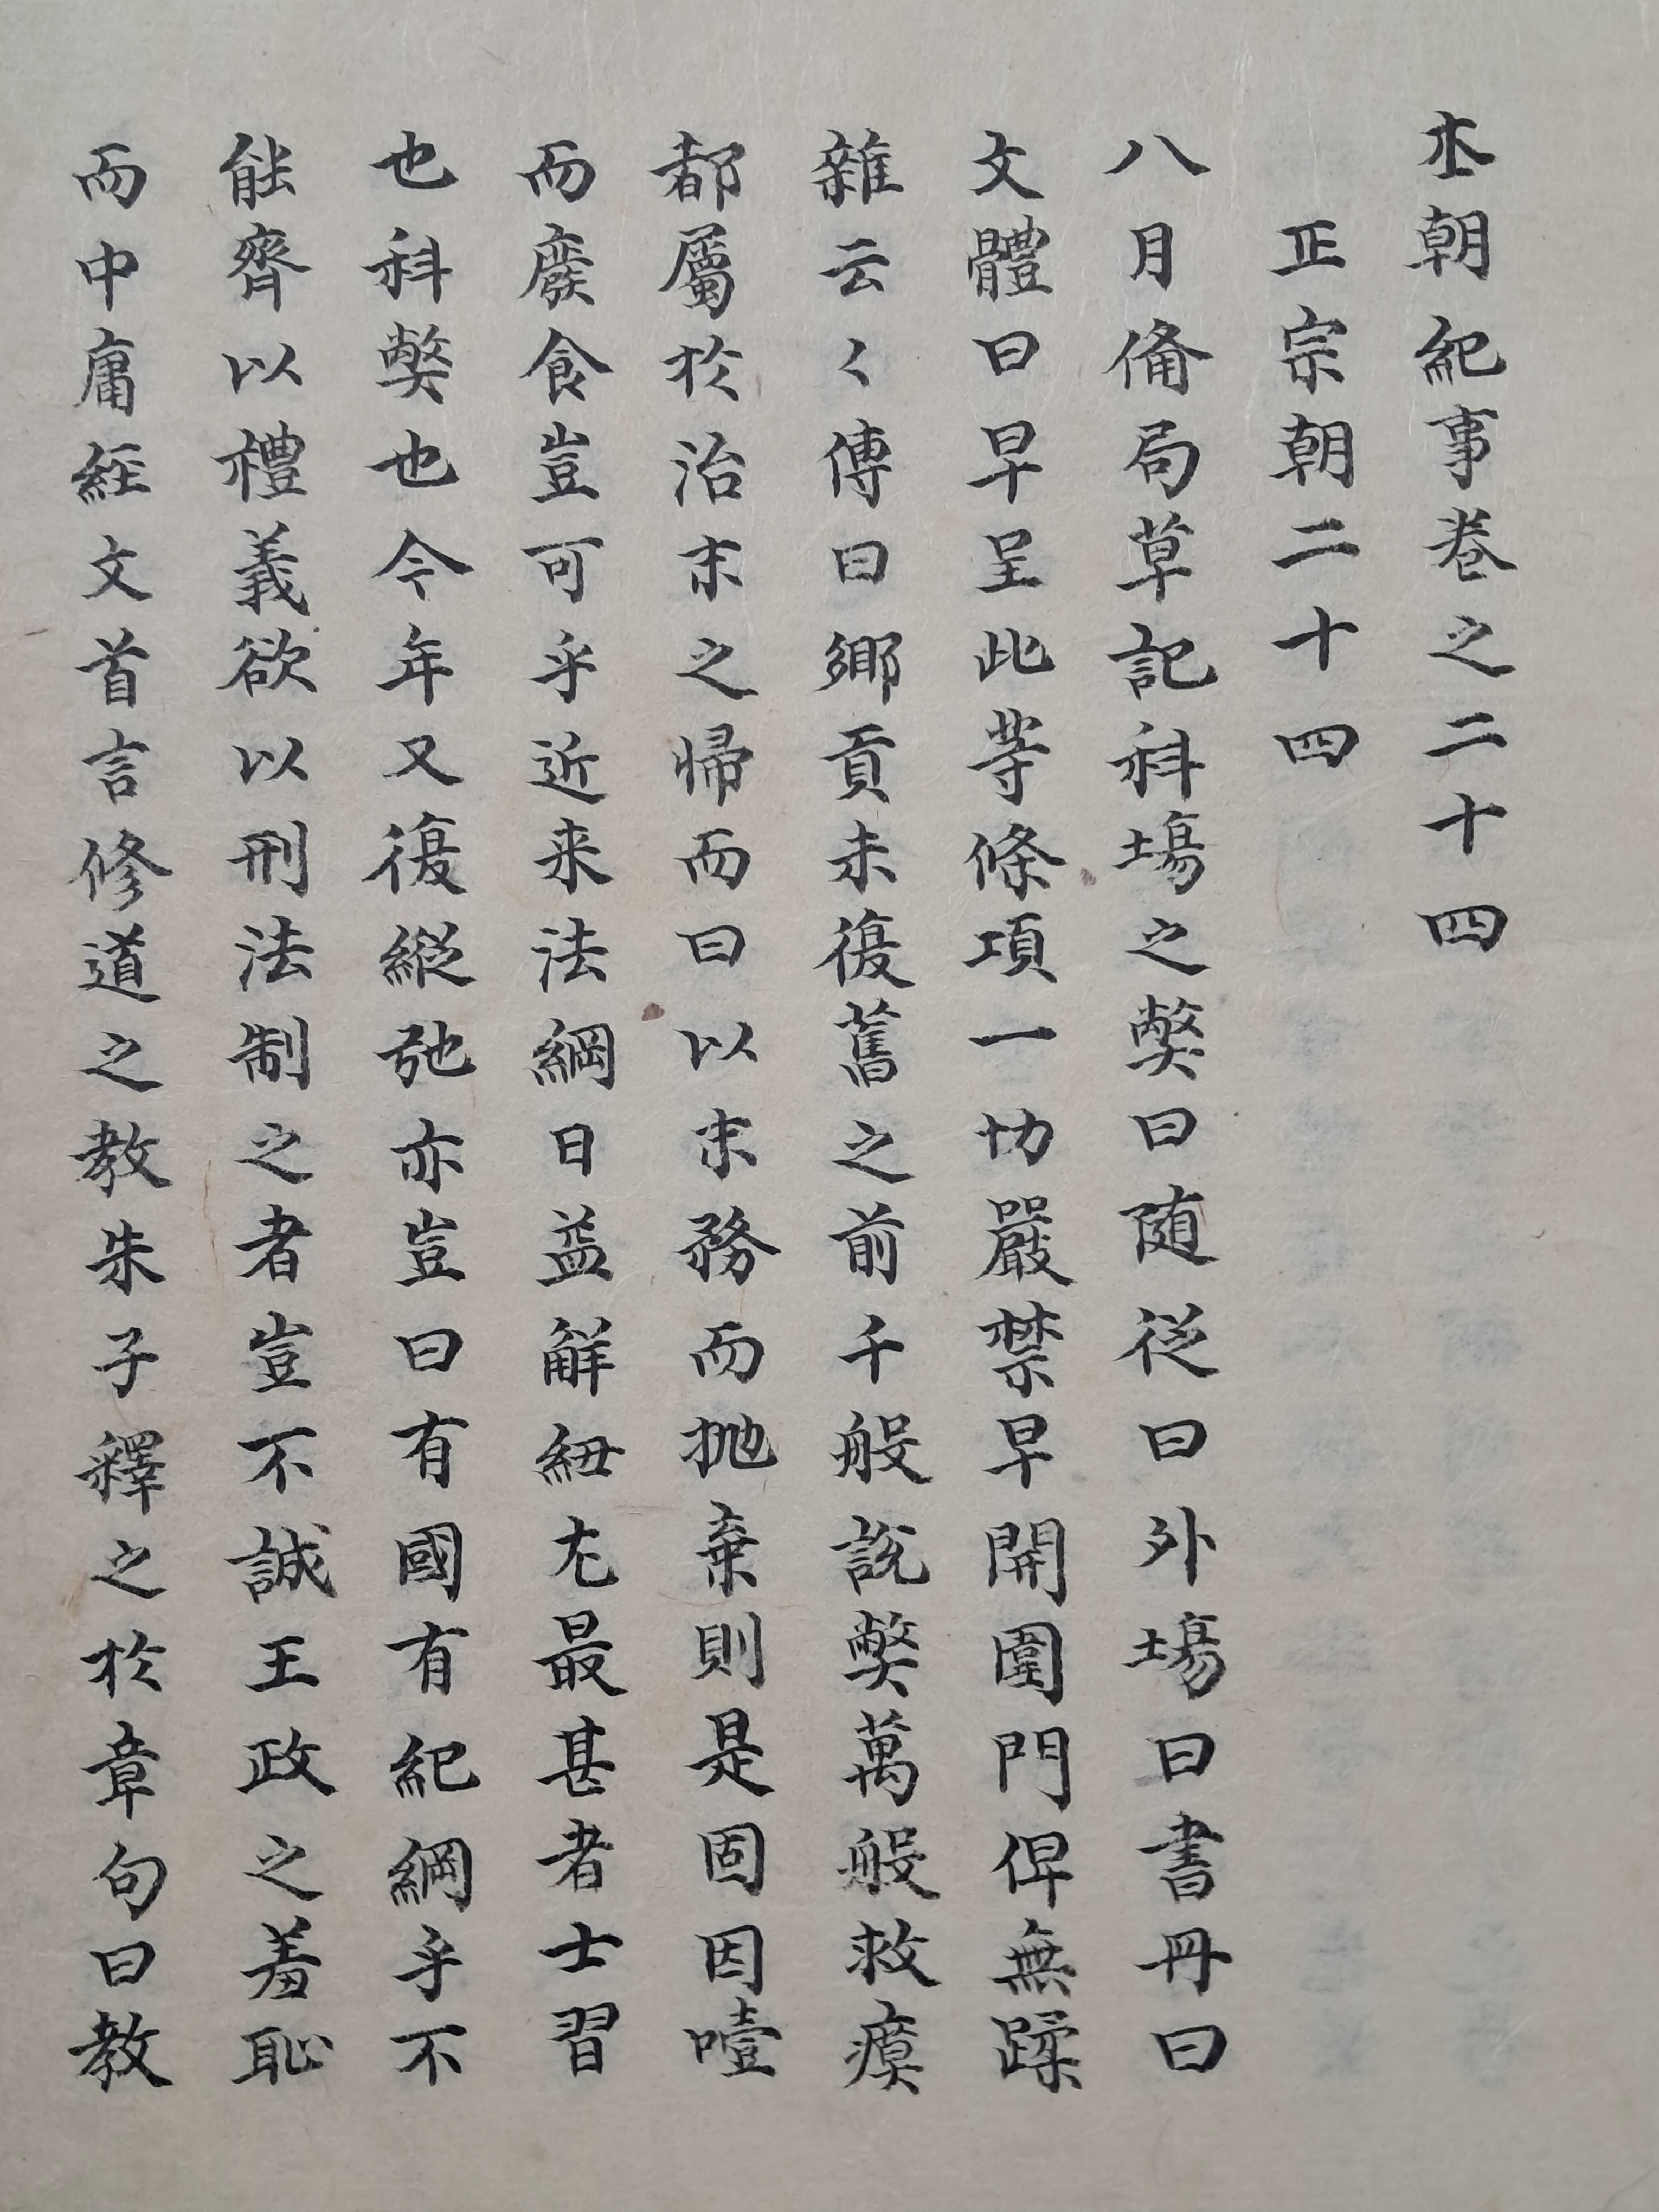 本朝紀事卷之二十四
正宗朝二十四
八月備局草記科場之弊曰随從曰外場曰書冊曰
文體曰早呈此等條項一切嚴禁早開圍門俾無蹂
雜云〻傳曰鄉貢未復舊之前千般說弊萬般救瘼
都屬於治末之歸而曰以末務而拋棄則是固因噎
而廢食豈可乎近来法綱日益解紐尤最甚者士習
也科弊也今年又復縱弛亦豈曰有國有紀綱乎不
能齊以禮義欲以刑法制之者豈不誠王政之羞恥
而中庸經文首言修道之教朱子釋之於章句曰教